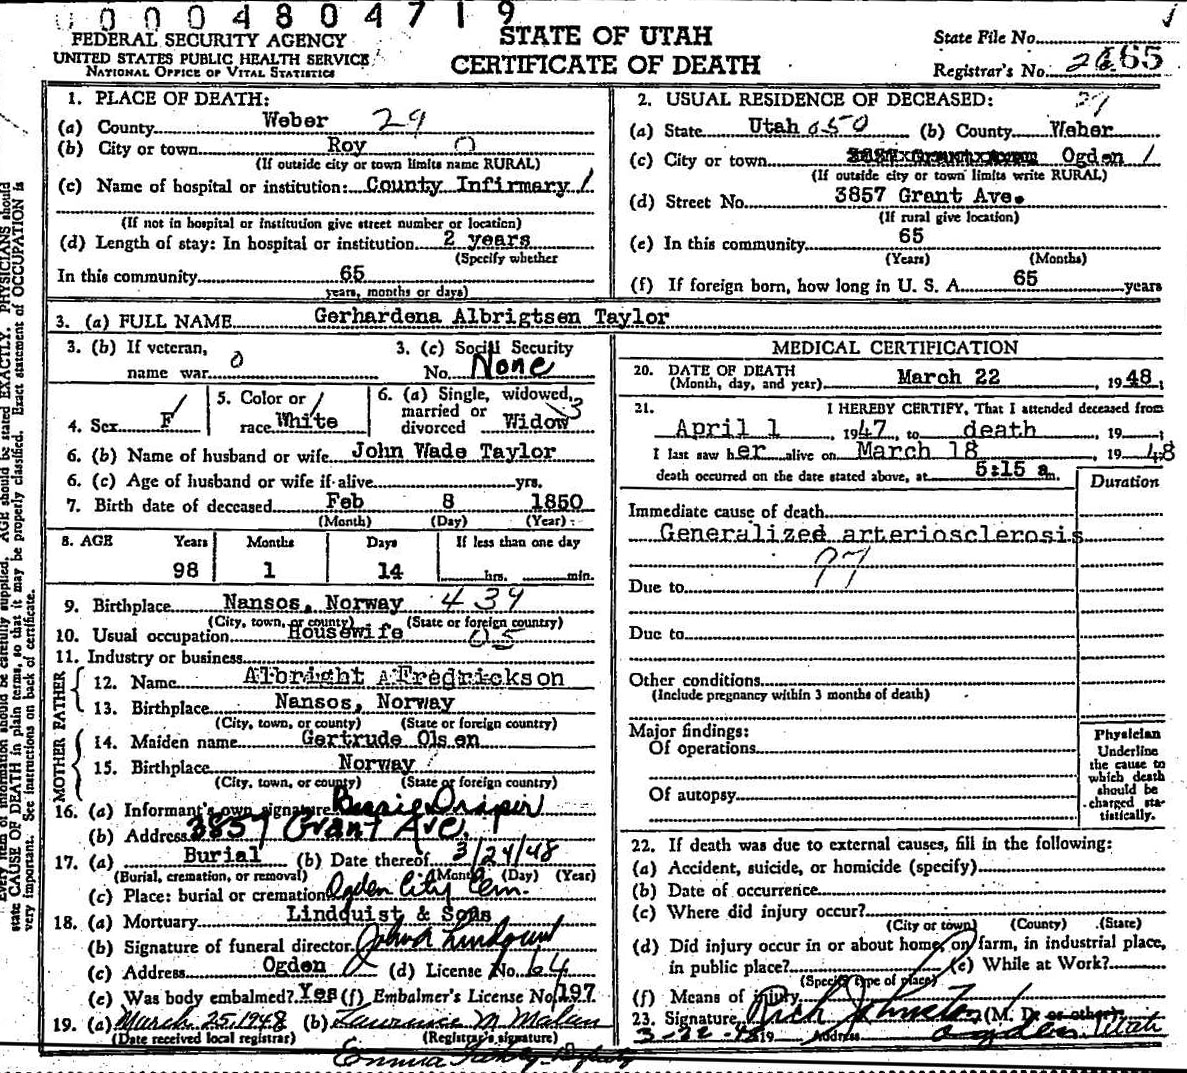 0 0 0 0 4 8 0 4 7 1 9
FEDERAL SECURITY AGENCY
UNITED STATES PUBLIC HEALTH SERVICE
NATIONAL OFFICE OF VITAL STATISTICS
STATE OF UTAH
CERTIFICATE OF DEATH
State File No.
Registrar's No. 65
1. PLACE OF DEATH:
(a) County Weber 29
(b) City or town Roy 0
(If outside city or town limits name RURAL)
(c) Name of hospital or institution: County Infirmary 1
(If not in hospital or institution give street number or location)
(d) Length of stay: In hospital or institution 2 years
(Specify whether
In this community 65
years, months or days)
2. USUAL RESIDENCE OF DECEASED: 29
(a) State Utah 650 (b) County Weber
(c) City or town Ogden 1
(If outside city or town limits write RURAL)
(d) Street No. 3857 Grant Ave.
(If rural give location)
(e) In this community 65
(Years) (Months)
(f) If foreign born, how long in U. S. A. 65 years
3. (a) FULL NAME Gerhardena Albrigtsen Taylor
3. (b) If veteran,
name war 0
3. (c) Social Security
No. None
4. Sex F
5. Color or
race White
6. (a) Single, widowed, 3
married or
divorced Widow
6. (b) Name of husband or wife John Wade Taylor
6. (c) Age of husband or wife if alive yrs.
7. Birth date of deceased Feb 8 1850
(Month) (Day) (Year)
8. AGE Years Months Days If less than one day
98 1 14 hrs. min.
9. Birthplace Nansos, Norway 439
(City, town, or county) (State or foreign country)
10. Usual occupation Housewife 05
11. Industry or business
FATHER
12. Name Albright A Fredrickson
13. Birthplace Nansos, Norway
(City, town, or county) (State or foreign country)
MOTHER
14. Maiden name Gertrude Olsen
15. Birthplace Norway
(City, town, or county) (State or foreign country)
16. (a) Informant's own signature Bessie Draper
(b) Address 3857 Grant Ave.
17. (a) Burial (b) Date thereof 3/24/48
(Burial, cremation, or removal) (Month) (Day) (Year)
(c) Place: burial or cremation Ogden City Cem.
18. (a) Mortuary Lindquist & Sons
(b) Signature of funeral director John A Lindquist
(c) Address Ogden (d) License No. 64
(e) Was body embalmed? Yes (f) Embalmer's License No. 197
19. (a) March 25, 1948 (b) Lawrence M Malan
(Date received local registrar) (Registrar's signature)
Emma
MEDICAL CERTIFICATION
20. DATE OF DEATH
(Month, day, and year) March 22, 1948
21. I HEREBY CERTIFY, That I attended deceased from
April 1, 1947, to death, 19
I last saw her alive on March 18, 1948
death occurred on the date stated above, at 5:15 a m.
Duration
Immediate cause of death
Generalized arteriosclerosis
97
Due to
Due to
Other conditions
(Include pregnancy within 3 months of death)
Major findings:
Of operations
Of autopsy
Physician
Underline
the cause to
which death
should be
charged sta-
tistically.
22. If death was due to external causes, fill in the following:
(a) Accident, suicide, or homicide (specify)
(b) Date of occurrence
(c) Where did injury occur?
(City or town) (County) (State)
(d) Did injury occur in or about home, on farm, in industrial place,
in public place? (e) While at Work?
(Specify type of place)
(f) Means of injury
23. Signature Rich Johnston (M. D. or other)
3-22-48 19 Address Ogden, Utah
Every item of information should be carefully supplied. AGE should be stated EXACTLY. PHYSICIANS should
state CAUSE OF DEATH in plain terms, so that it may be properly classified. Exact statement of OCCUPATION is
very important. See instructions on back of certificate.